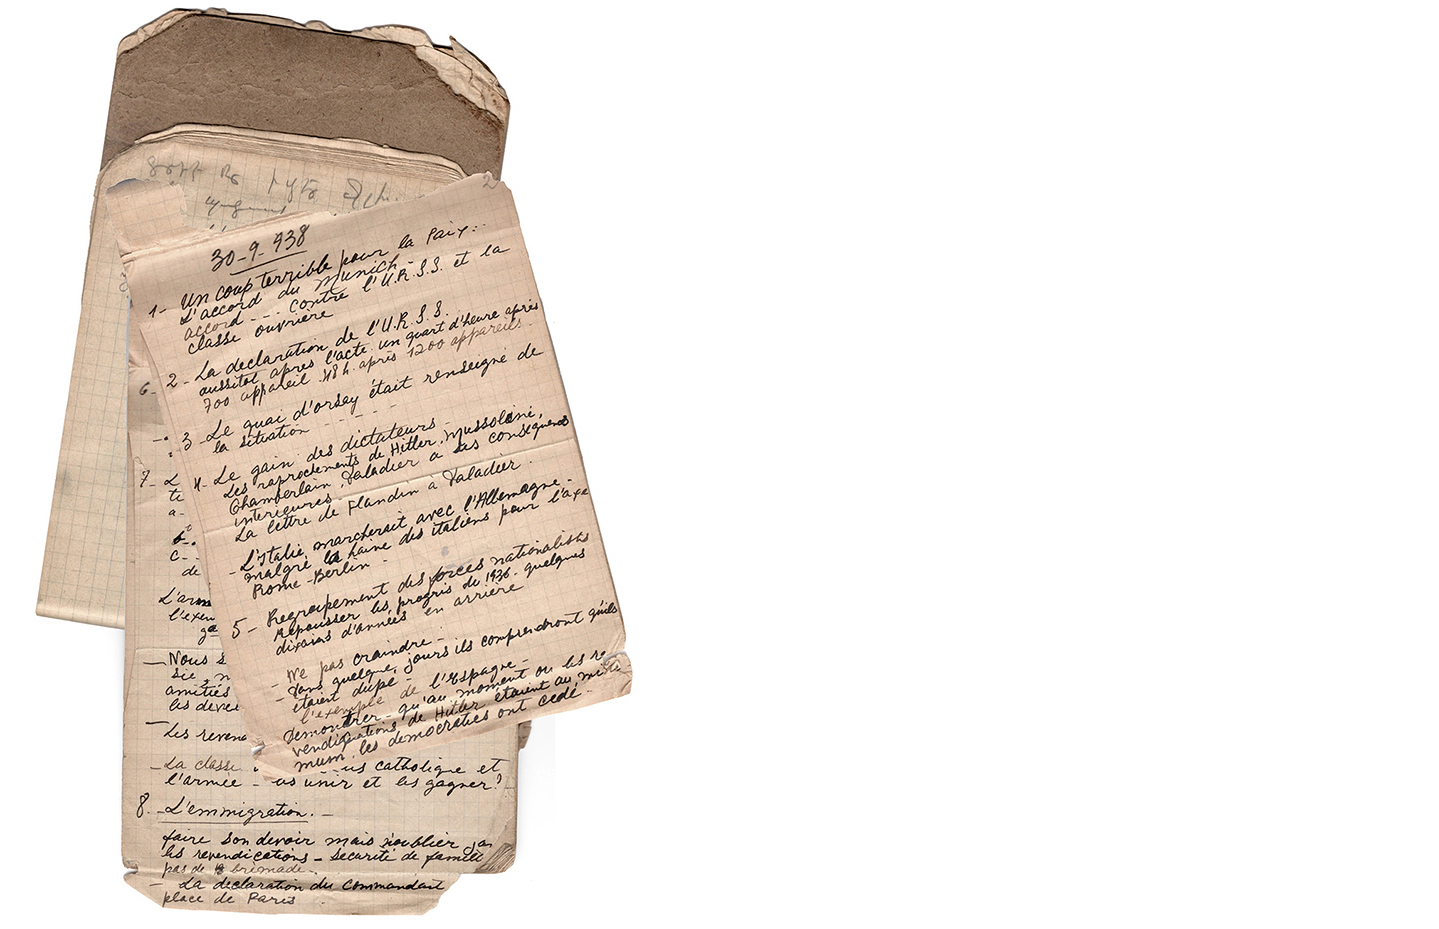 2
30-9-938
1- Un coup terrible pour la Paix..
L'accord du Munich -
accord --- contre l'U.R.S.S. et la
classe ouvriere
2- La declaration de l'U.R.S.S.
aussitot apres l'acte un quart d'heure après
700 appareil 48 h. après 1200 appareils -
3- Le quai d'orsay était renseigné de
la situation - - - - -
4- Le gain des dictateurs -
Les raprochements de Hitler, Mussolini,
Chamberlain, Daladier a ses consequences
interieures -
La lettre de Flandin a Daladier.
- L'Italie marcherait avec l'Allemagne -
malgré la haine des italiens pour l'axe
Rome-Berlin -
5- Regroupement des forces nationalistes
Repousser les progris de 1936 - quelques
dixains d'années en arriere
- Ne pas craindre -
Dans quelque, jours ils comprendront qu'ils
etaient dupé -
l'exemple de l'Espagne -
demontrer - qu'au moment ou les re
vendiquations de Hitler étaient au
mum les democraties ont cedé -
6-
7- L
te
a-
b-
c-
de
L'arm
l'exem
ga
- Nous s
sie, n
amitiés
les deve
- Les reven
- La classe catholique et
l'armée - les unir et les gagner?
8. - L'emmigration. -
faire son devoir mais n'oublier
les revendications - securité de famill
pas de brimade.
- La declaration du commandant
place de Paris -